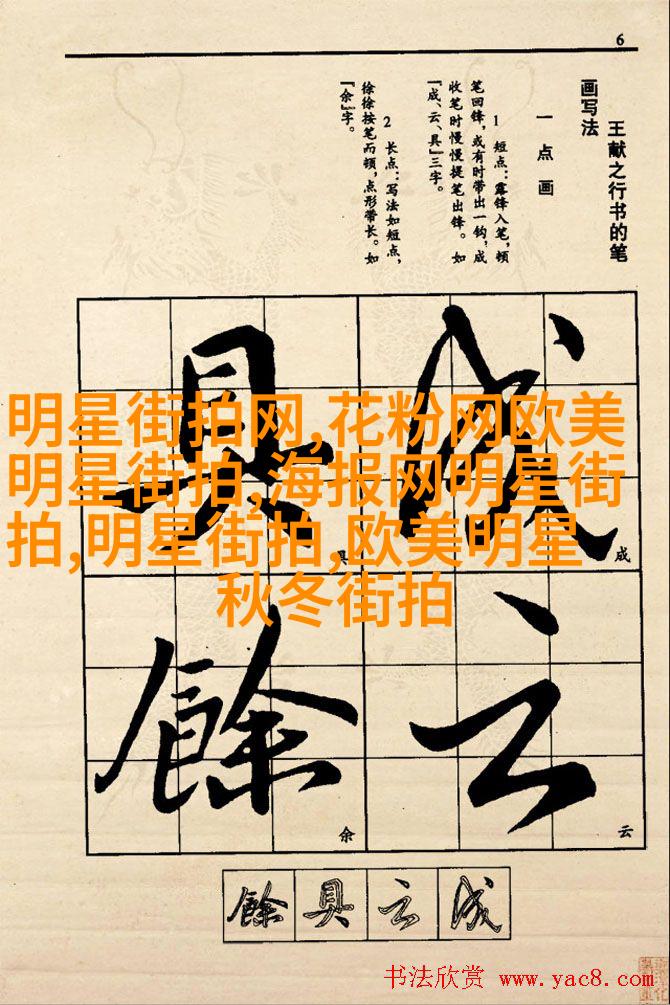 6
王献之行书的笔
画写法
一 点 画
1 短点：露锋入笔，顿
笔回锋，或有时带出一钩，成
收笔时慢慢提笔出锋。如
「成、云、具」三字。
2 长点：写法如短点，
徐徐按笔而顿，点形带长。如
「余」字。
成
具
云
餘
成
具
云
余
明星街拍网,花粉网欧美
明星街拍,海报网明星街
拍,明星街拍,欧美明星
秋冬街拍
餘 具 云 成
书法欣赏 www.yac8.com